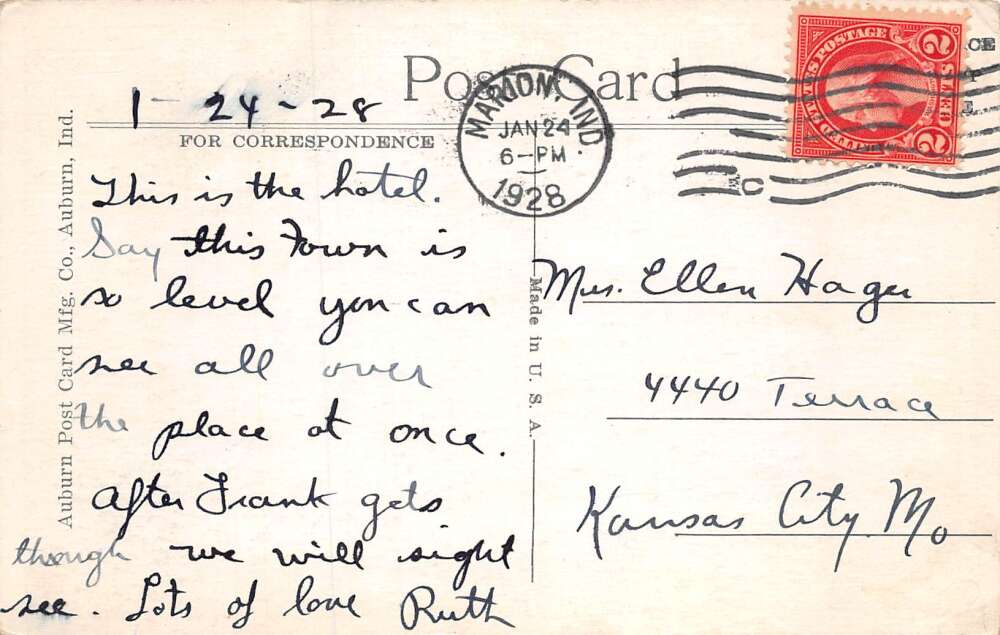 Post Card
1-24-28
FOR CORRESPONDENCE
MARION, IND.
JAN 24
6-PM
1928
This is the hotel.
Say this Town is
so level you can
see all over
the place at once.
After Frank gets
though we will sight
see. Lots of love Ruth
Mrs. Ellen Hager
4440 Terrace
Kansas City Mo
Auburn Post Card Mfg. Co., Auburn, Ind.
Made in U. S. A.
STATES POSTAGE
2 2